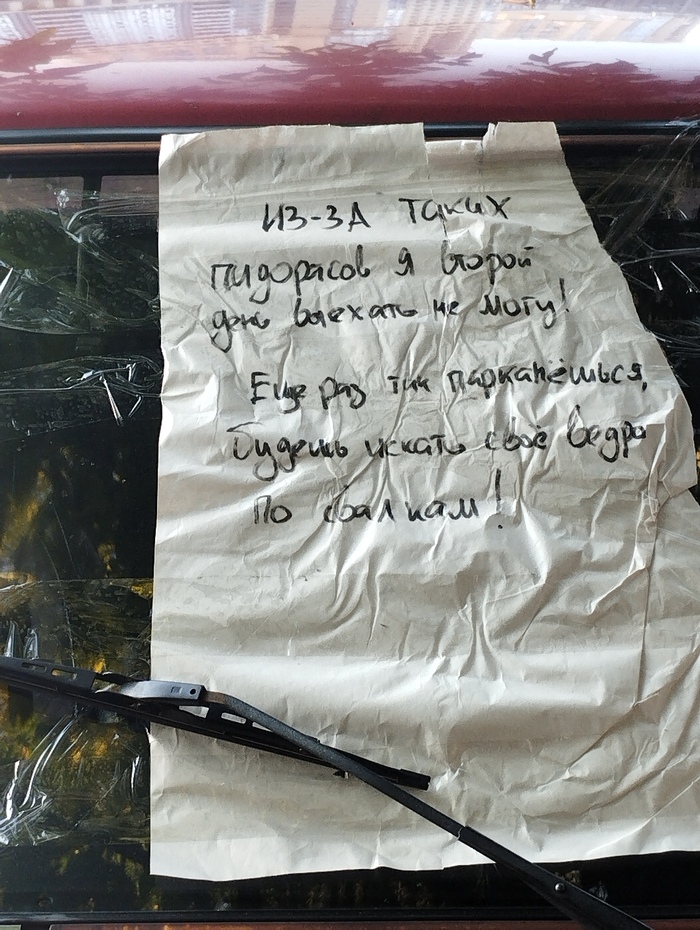 Из-за таких
пидорасов я второй
день выехать не могу!
Еще раз так парканёшься,
будешь искать своё ведро
по свалкам!